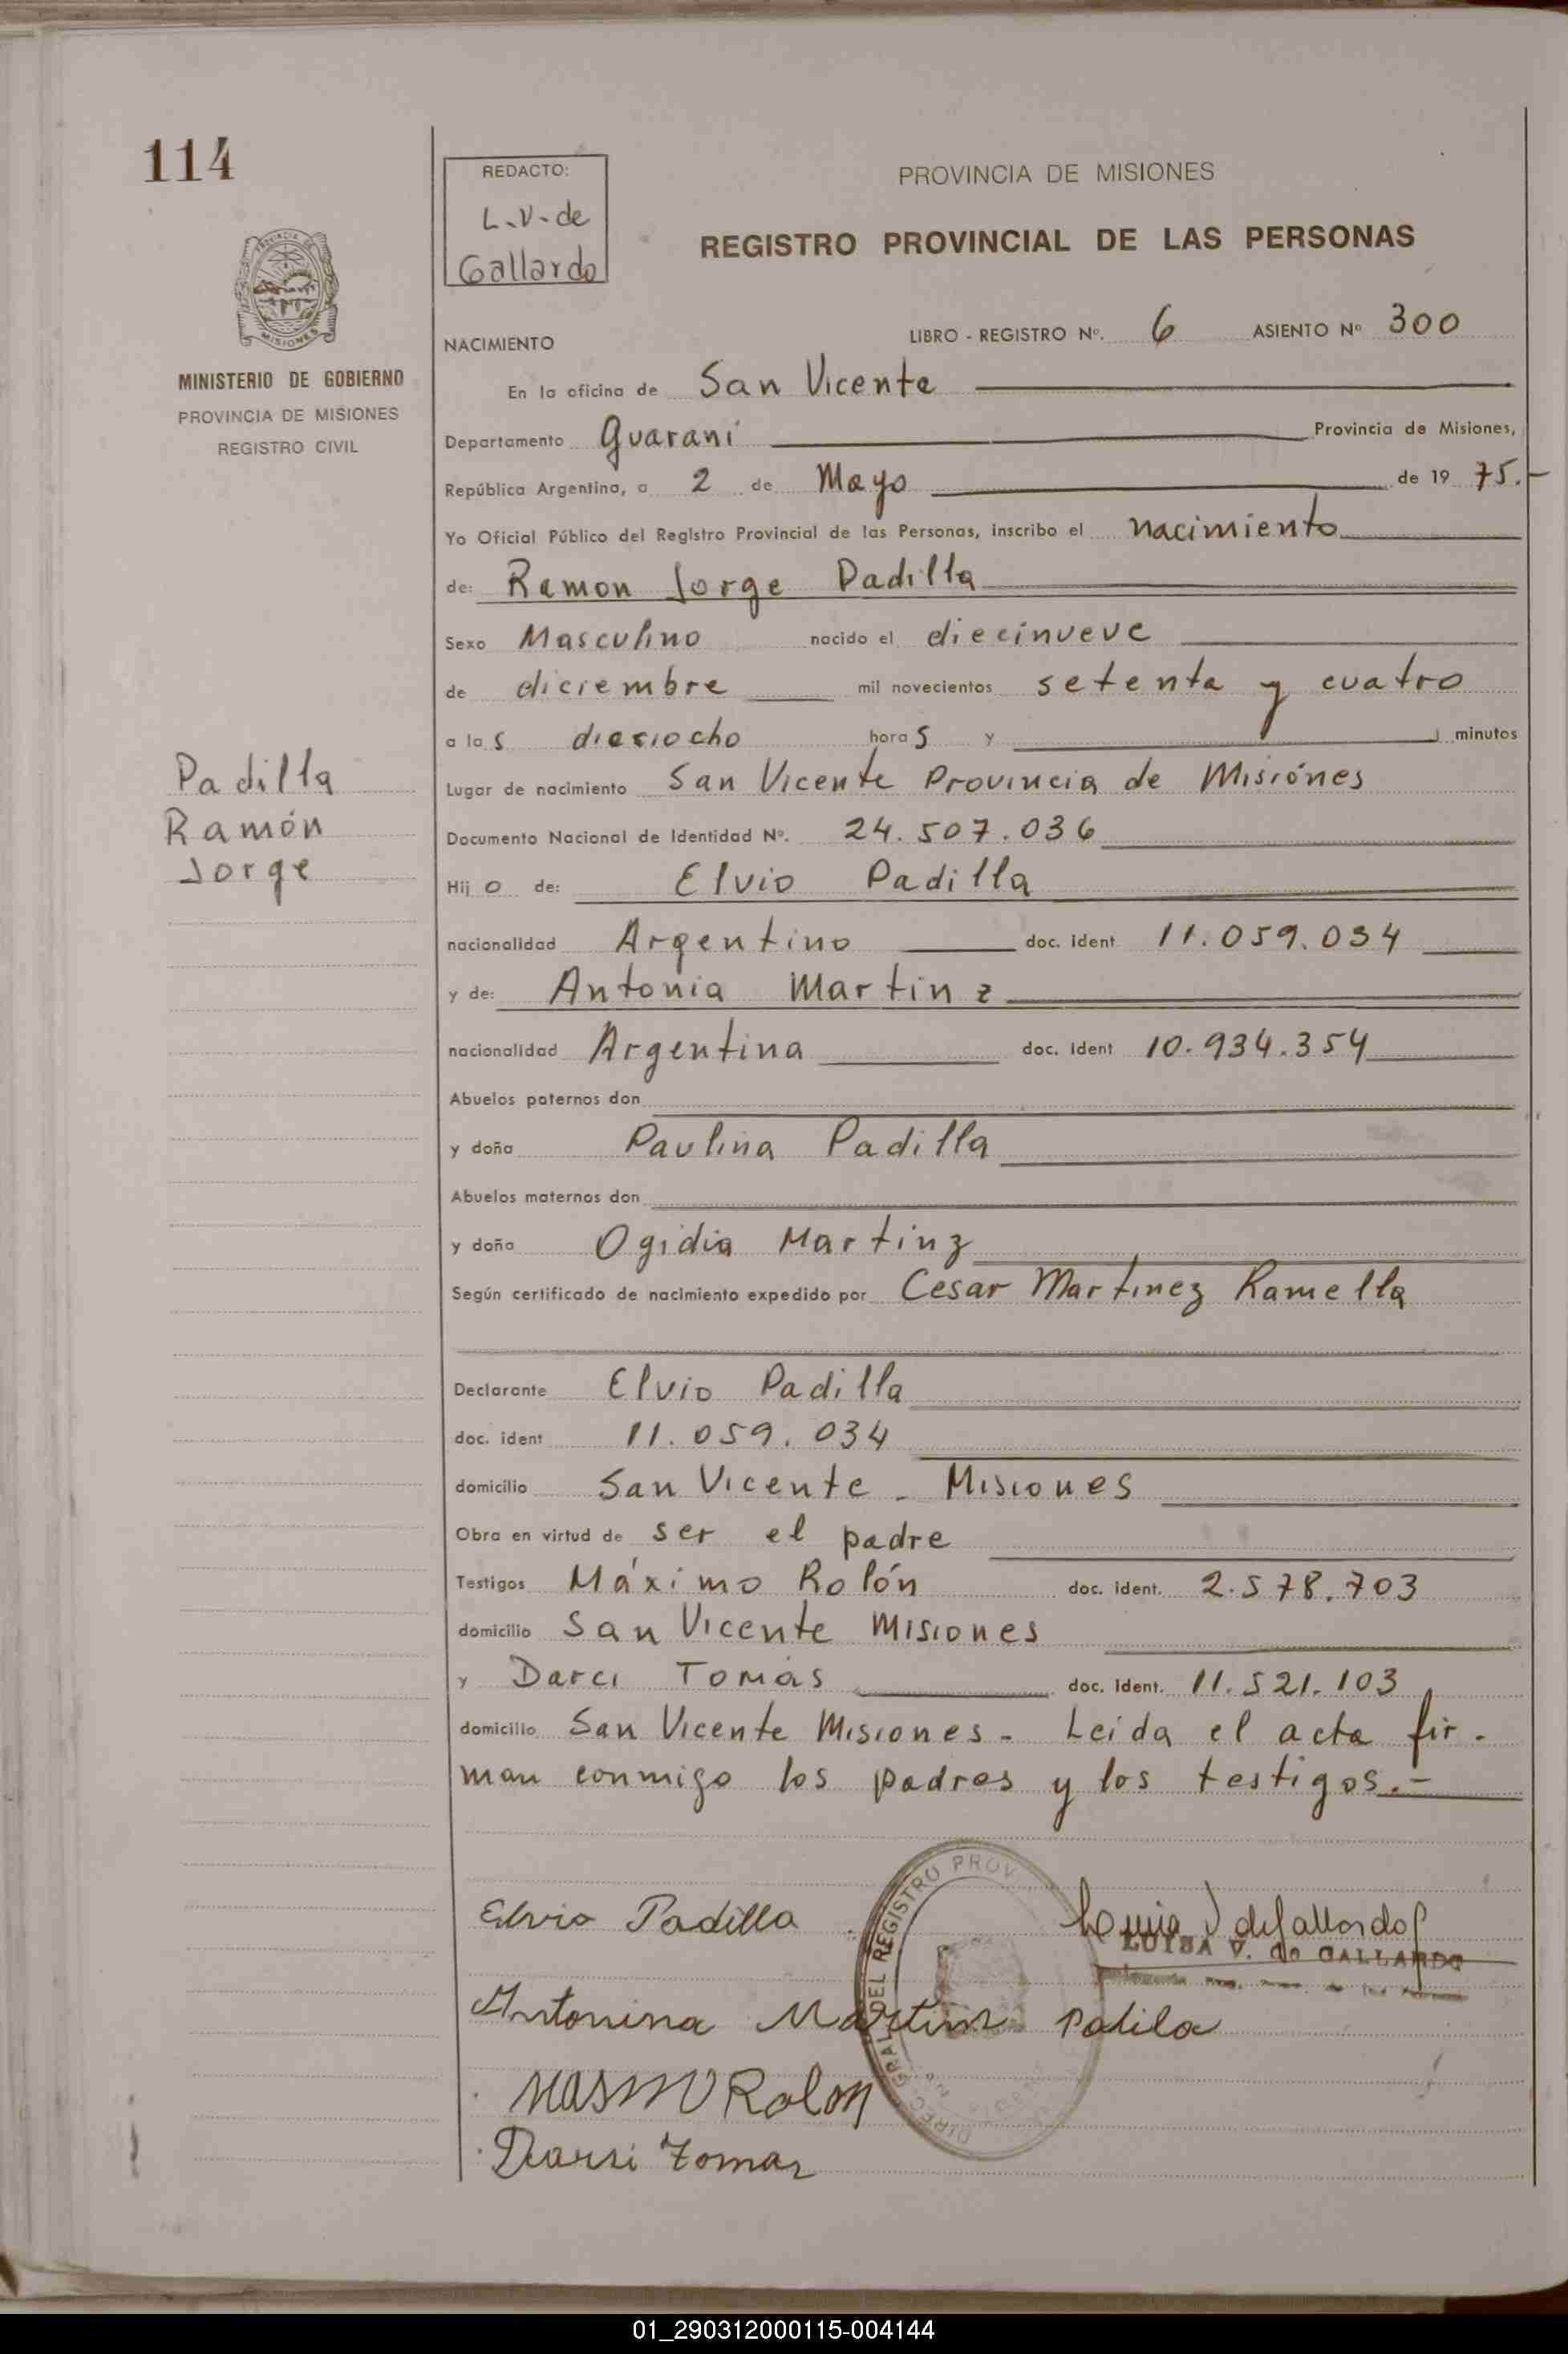 114
REDACTO:
L.V. de
Gallardo
PROVINCIA DE MISIONES
REGISTRO PROVINCIAL DE LAS PERSONAS
MISIONES
MINISTERIO DE GOBIERNO
PROVINCIA DE MISIONES
REGISTRO CIVIL
NACIMIENTO
LIBRO - REGISTRO Nº. 6 ASIENTO Nº 300
En la oficina de San Vicente
Departamento Guarani Provincia de Misiones,
República Argentina, a 2 de Mayo de 19 75.-
Yo Oficial Público del Registro Provincial de las Personas, inscribo el nacimiento
de: Ramon Jorge Padilla
Sexo Masculino nacido el diecinueve
de diciembre mil novecientos setenta y cuatro
a las dieciocho horas y minutos
Lugar de nacimiento San Vicente Provincia de Misiónes
Documento Nacional de Identidad Nº. 24.507.036
Padilla
Ramón
Jorge
Hijo de: Elvio Padilla
nacionalidad Argentino doc. ident 11.059.034
y de: Antonia Martinz
nacionalidad Argentina doc. ident 10.934.354
Abuelos paternos don
y doña Paulina Padilla
Abuelos maternos don
y doña Ogidia Martinz
Según certificado de nacimiento expedido por Cesar Martinez Ramella
Declarante Elvio Padilla
doc. ident 11.059.034
domicilio San Vicente - Misiones
Obra en virtud de ser el padre
Testigos Máximo Rolón doc. ident. 2.578.703
domicilio San Vicente Misiones
y Darci Tomás doc. ident. 11.521.103
domicilio San Vicente Misiones - Leida el acta fir-
man conmigo los padres y los testigos.-
Elvio Padilla
LUISA V. de GALLARDO
DIREC. GRAL. DEL REGISTRO PROV
Antonina Martins Padila
Masmo Rolon
Darsi Tomas
01_290312000115-004144